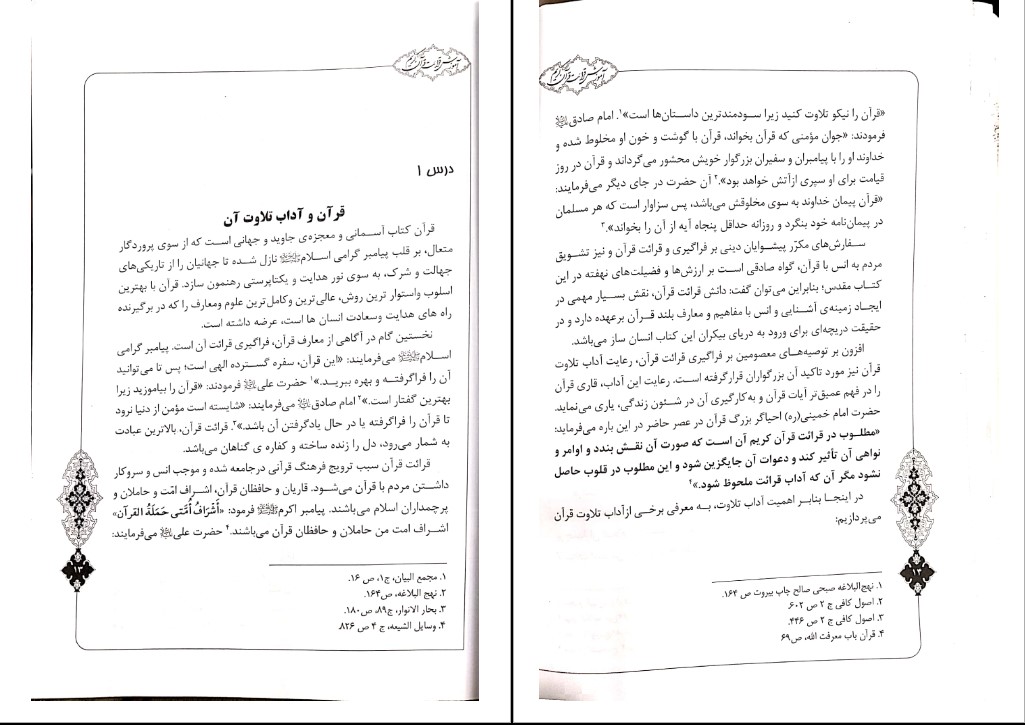 آموزش قرائت قرآن کریم
درس ۱
قرآن و آداب تلاوت آن
قرآن کتاب آسمانی و معجزه‌ی جاوید و جهانی است که از سوی پروردگار
متعال، بر قلب پیامبر گرامی اسلامﷺ نازل شده تا جهانیان را از تاریکی‌های
جهالت و شرک، به سوی نور هدایت و یکتاپرستی رهنمون سازد. قرآن با بهترین
اسلوب واستوار ترین روش، عالی‌ترین وکامل‌ترین علوم ومعارف را که در برگیرنده
راه های هدایت وسعادت انسان ها است، عرضه داشته است.
نخستین گام در آگاهی از معارف قرآن، فراگیری قرائت آن است. پیامبر گرامی
اسلامﷺ می‌فرمایند: «این قرآن، سفره گسترده الهی است؛ پس تا می‌توانید
آن را فراگرفته و بهره ببرید.»۱ حضرت علی فرمودند: «قرآن را بیاموزید زیرا
بهترین گفتار است.»۲ امام صادق می‌فرمایند: «شایسته است مؤمن از دنیا نرود
تا قرآن را فراگرفته یا در حال یادگرفتن آن باشد.»۳. قرائت قرآن، بالاترین عبادت
به شمار می‌رود، دل را زنده ساخته و کفاره ی گناهان می‌باشد.
قرائت قرآن سبب ترویج فرهنگ قرآنی درجامعه شده و موجب انس و سروکار
داشتن مردم با قرآن می‌شود. قاریان و حافظان قرآن، اشراف امّت و حاملان و
پرچمداران اسلام می‌باشند. پیامبر اکرمﷺ فرمود: «أَشْرَافُ أُمَّتی حَمَلَةُ القرآن»
اشراف امت من حاملان و حافظان قرآن می‌باشند.۴ حضرت علی می‌فرمایند:
۱. مجمع البیان، ج۱، ص ۱۶.
۲. نهج البلاغه، ص۱۶۴.
۳. بحار الانوار، ج۸۹، ص۱۸۰.
۴. وسایل الشیعه، ج ۴ ص ۸۲۶
۱۳
آموزش قرائت قرآن کریم
«قرآن را نیکو تلاوت کنید زیرا سودمندترین داستان‌ها است»۱. امام صادق
فرمودند: «جوان مؤمنی که قرآن بخواند، قرآن با گوشت و خون او مخلوط شده و
خداوند او را با پیامبران و سفیران بزرگوار خویش محشور می‌گرداند و قرآن در روز
قیامت برای او سپری ازآتش خواهد بود».۲ آن حضرت در جای دیگر می‌فرمایند:
«قرآن پیمان خداوند به سوی مخلوقش می‌باشد، پس سزاوار است که هر مسلمان
در پیمان‌نامه خود بنگرد و روزانه حداقل پنجاه آیه از آن را بخواند».۳
سفارش‌های مکرّر پیشوایان دینی بر فراگیری و قرائت قرآن و نیز تشویق
مردم به انس با قرآن، گواه صادقی است بر ارزش‌ها و فضیلت‌های نهفته در این
کتاب مقدس؛ بنابراین می‌توان گفت: دانش قرائت قرآن، نقش بسیار مهمی در
ایجاد زمینه‌ی آشنایی و انس با مفاهیم و معارف بلند قرآن برعهده دارد و در
حقیقت دریچه‌ای برای ورود به دریای بیکران این کتاب انسان ساز می‌باشد.
افزون بر توصیه‌های معصومین بر فراگیری قرائت قرآن، رعایت آداب تلاوت
قرآن نیز مورد تاکید آن بزرگواران قرارگرفته است. رعایت این آداب، قاری قرآن
را در فهم عمیق‌تر آیات قرآن و به‌کارگیری آن در شئون زندگی، یاری می‌نماید.
حضرت امام خمینی(ره) احیاگر بزرگ قرآن در عصر حاضر در این باره می‌فرماید:
«مطلوب در قرائت قرآن کریم آن است که صورت آن نقش بندد و اوامر و
نواهی آن تأثیر کند و دعوات آن جایگزین شود و این مطلوب در قلوب حاصل
نشود مگر آن که آداب قرائت ملحوظ شود.»۴
در اینجا بنابر اهمیت آداب تلاوت، به معرفی برخی ازآداب تلاوت قرآن
می‌پردازیم:
۱. نهج‌البلاغه صبحی صالح چاپ بیروت ص ۱۶۴.
۲. اصول کافی ج ۲ ص ۶۰۲.
۳. اصول کافی ج ۲ ص ۴۴۶.
۴. قرآن باب معرفت الله، ص۶۹